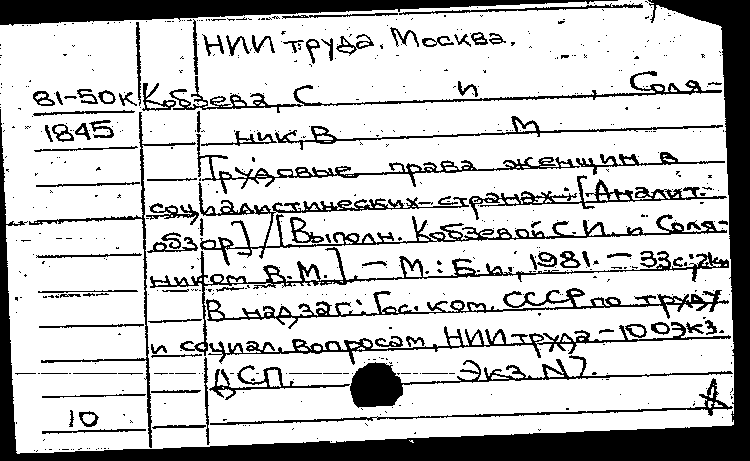 НИИ труда. Москва.
81-50к Кобзева, С И , Соля-
1845 ник, В М
Трудовые права женщин в
социалистических странах: [Аналит.
обзор] / [Выполн. Кобзевой С.И. и Соля-
ником В.М.]. — М.: Б.и., 1981. — 33с.; 2км
В надзаг: Гос. ком. СССР по труду
и социал. вопросам, НИИ труда. - 100экз.
ДСП. Экз. N7.
10